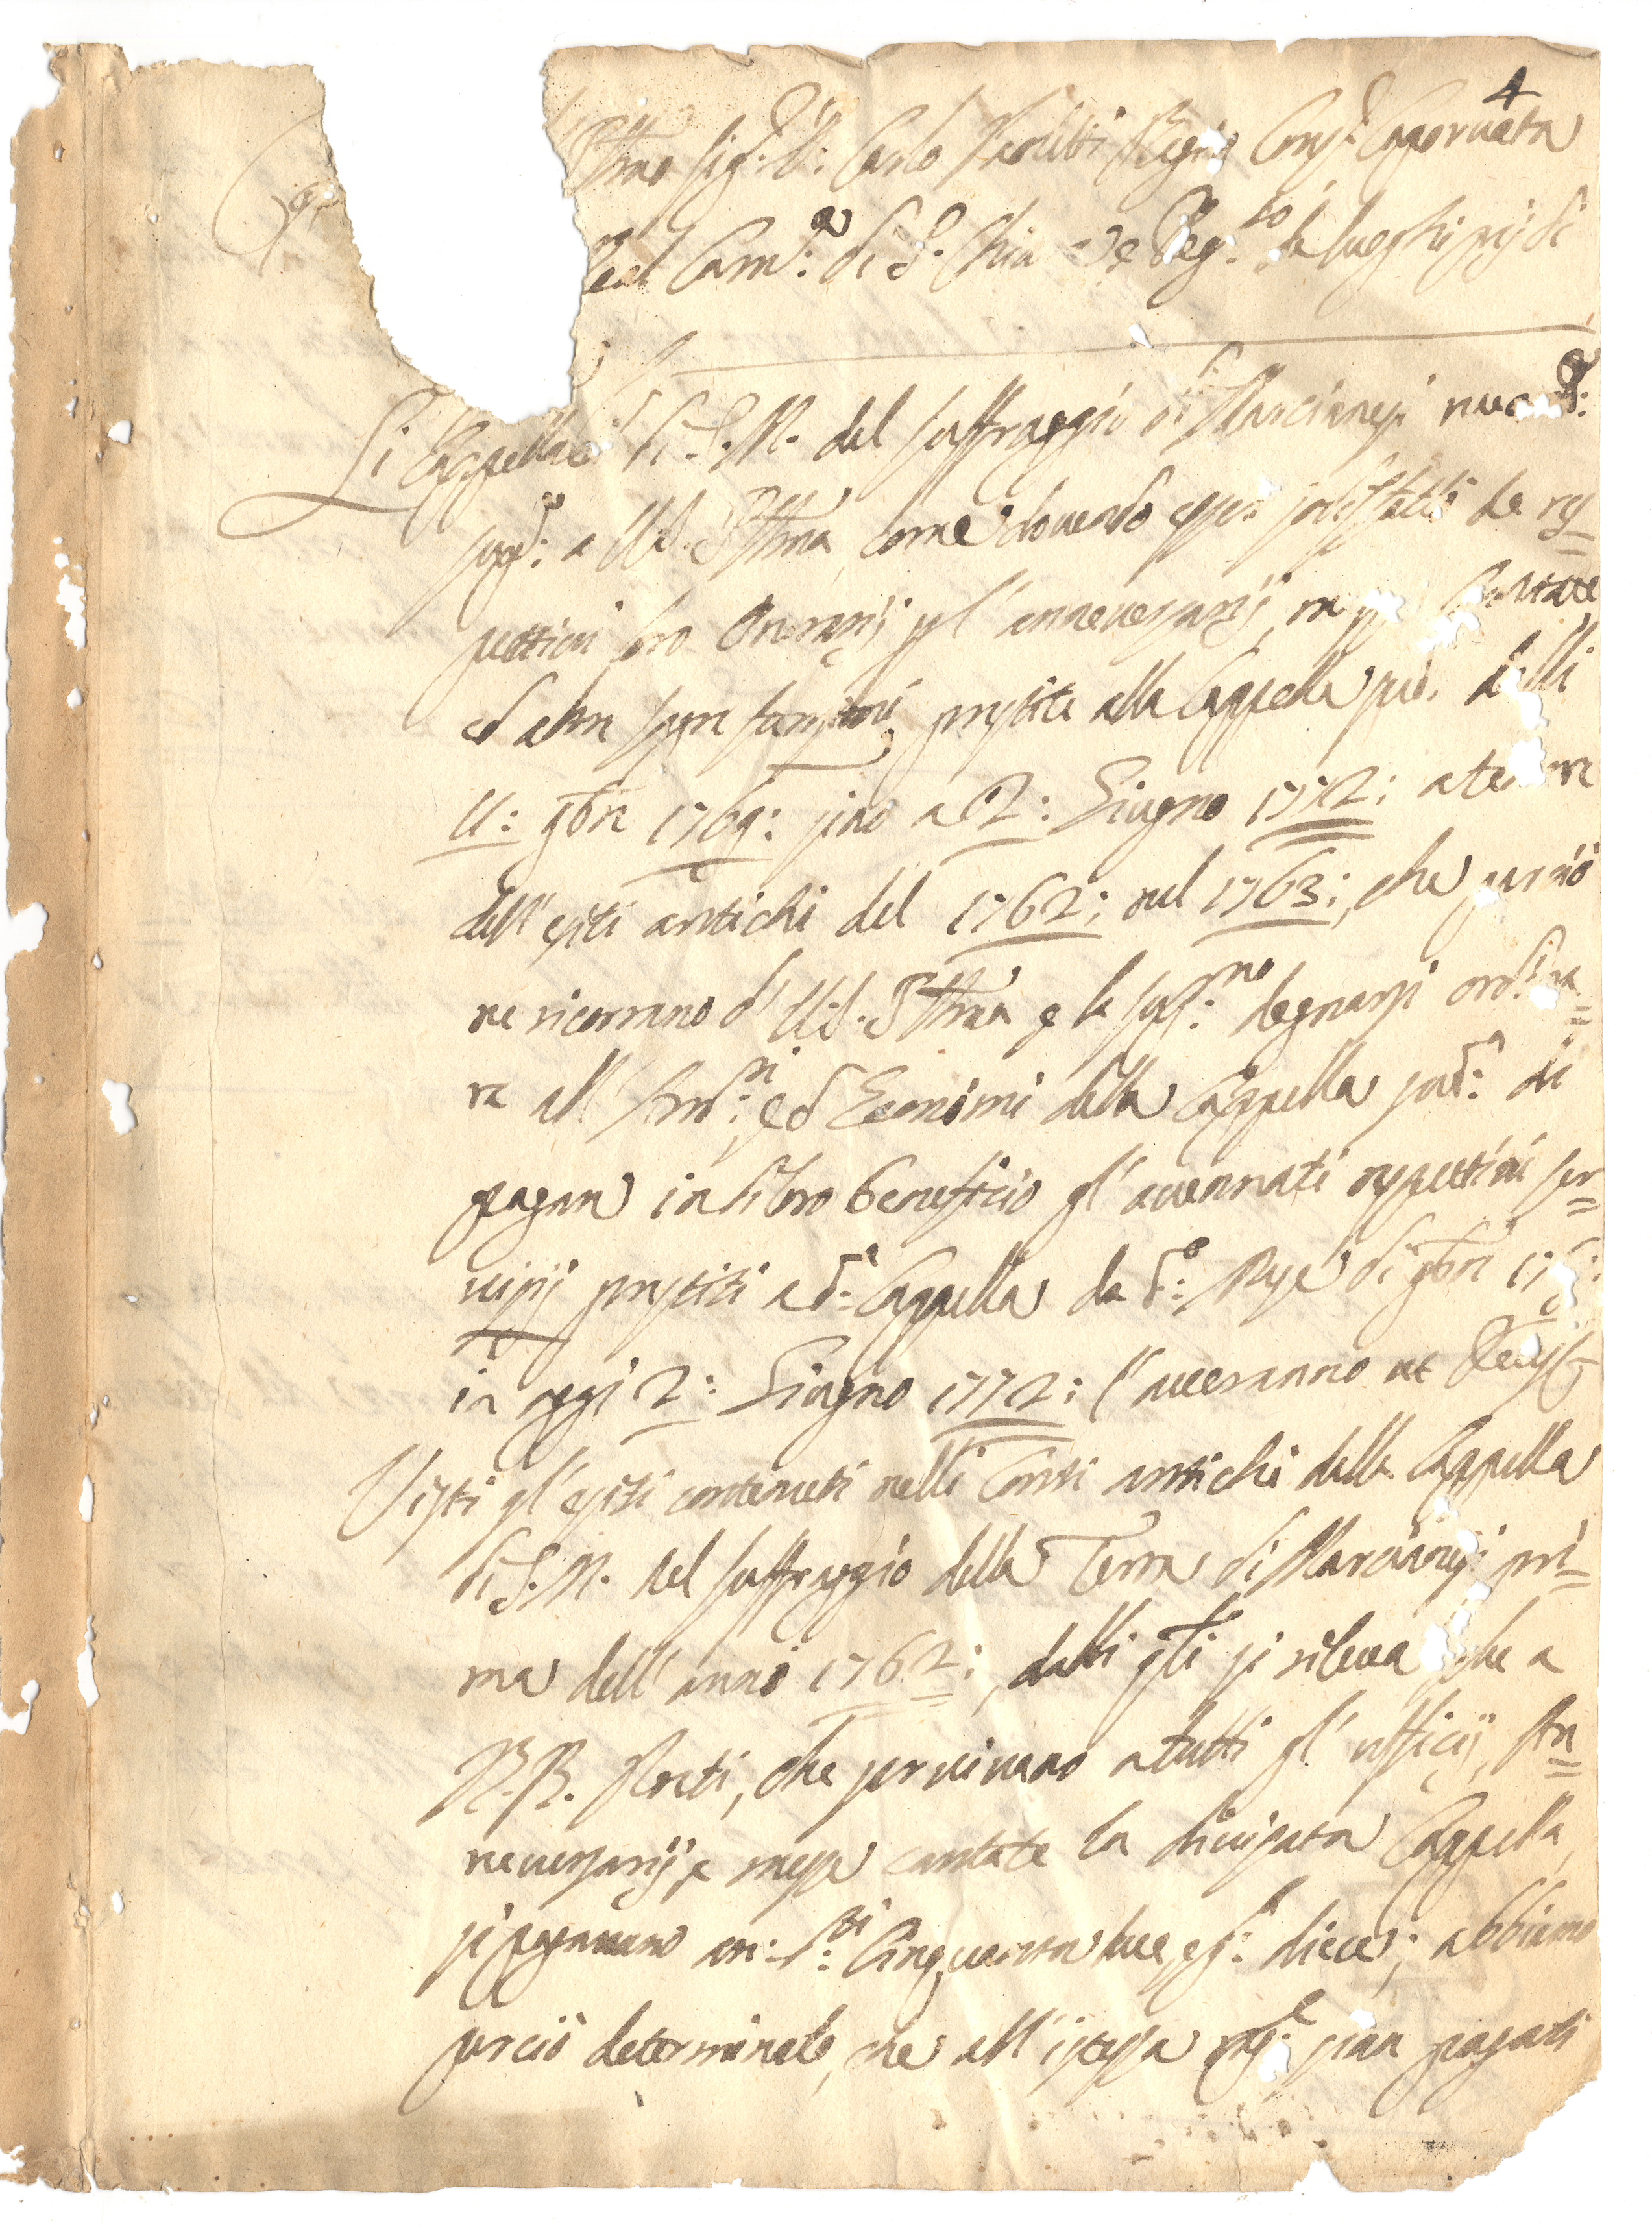 4
Ill.mo Sig.r D: Carlo Regio Cons.r Caporuota
Real Cam.a di S. Chia e Deleg.to de luoghi pij di
Li Cappellani di S. M. del suffraggio di Marcianesi
supp: a V.S. Ill.ma come dovendo esser sodisfatti de res=
pettivi loro Onorarij p l'anneversarij, messe Cantate
ed altre sagre funzioni prestite alla Cappella pred.a dalli
11: 9bre 1769: sino a 2: Giugno 1772: a tenore
dell'esiti antichi del 1762: nel 1763: che perciò
ne ricorrano d' V.S. Ill.ma e la supp.no degnarsi ordina=
re all' Amm.ri, ed Economi della Cappella pred.a di
pagare in di loro beneficio gl'accennati respettivi ser=
vizij prestiti a d.a Cappella da d.o Mese di 9bre 1769:
in oggi 2: Giugno 1772: l'averanno ut Deus
Visti gl'esiti contenuti nelli Conti antichi della Cappella
di S. M. del suffraggio della Terra di Marcianesi pri=
ma dell'anno 1762: dalli q.li si rileva che a
R.R. Preti, che servivano a tutti gl'ufficij, An=
neversarij, e messe cantate la divisata Cappella,
si pagavano an: d.ti Cinquanta due, e g.a diece; abbiamo
perciò determinato, che all'istessa rag.e sian pagati